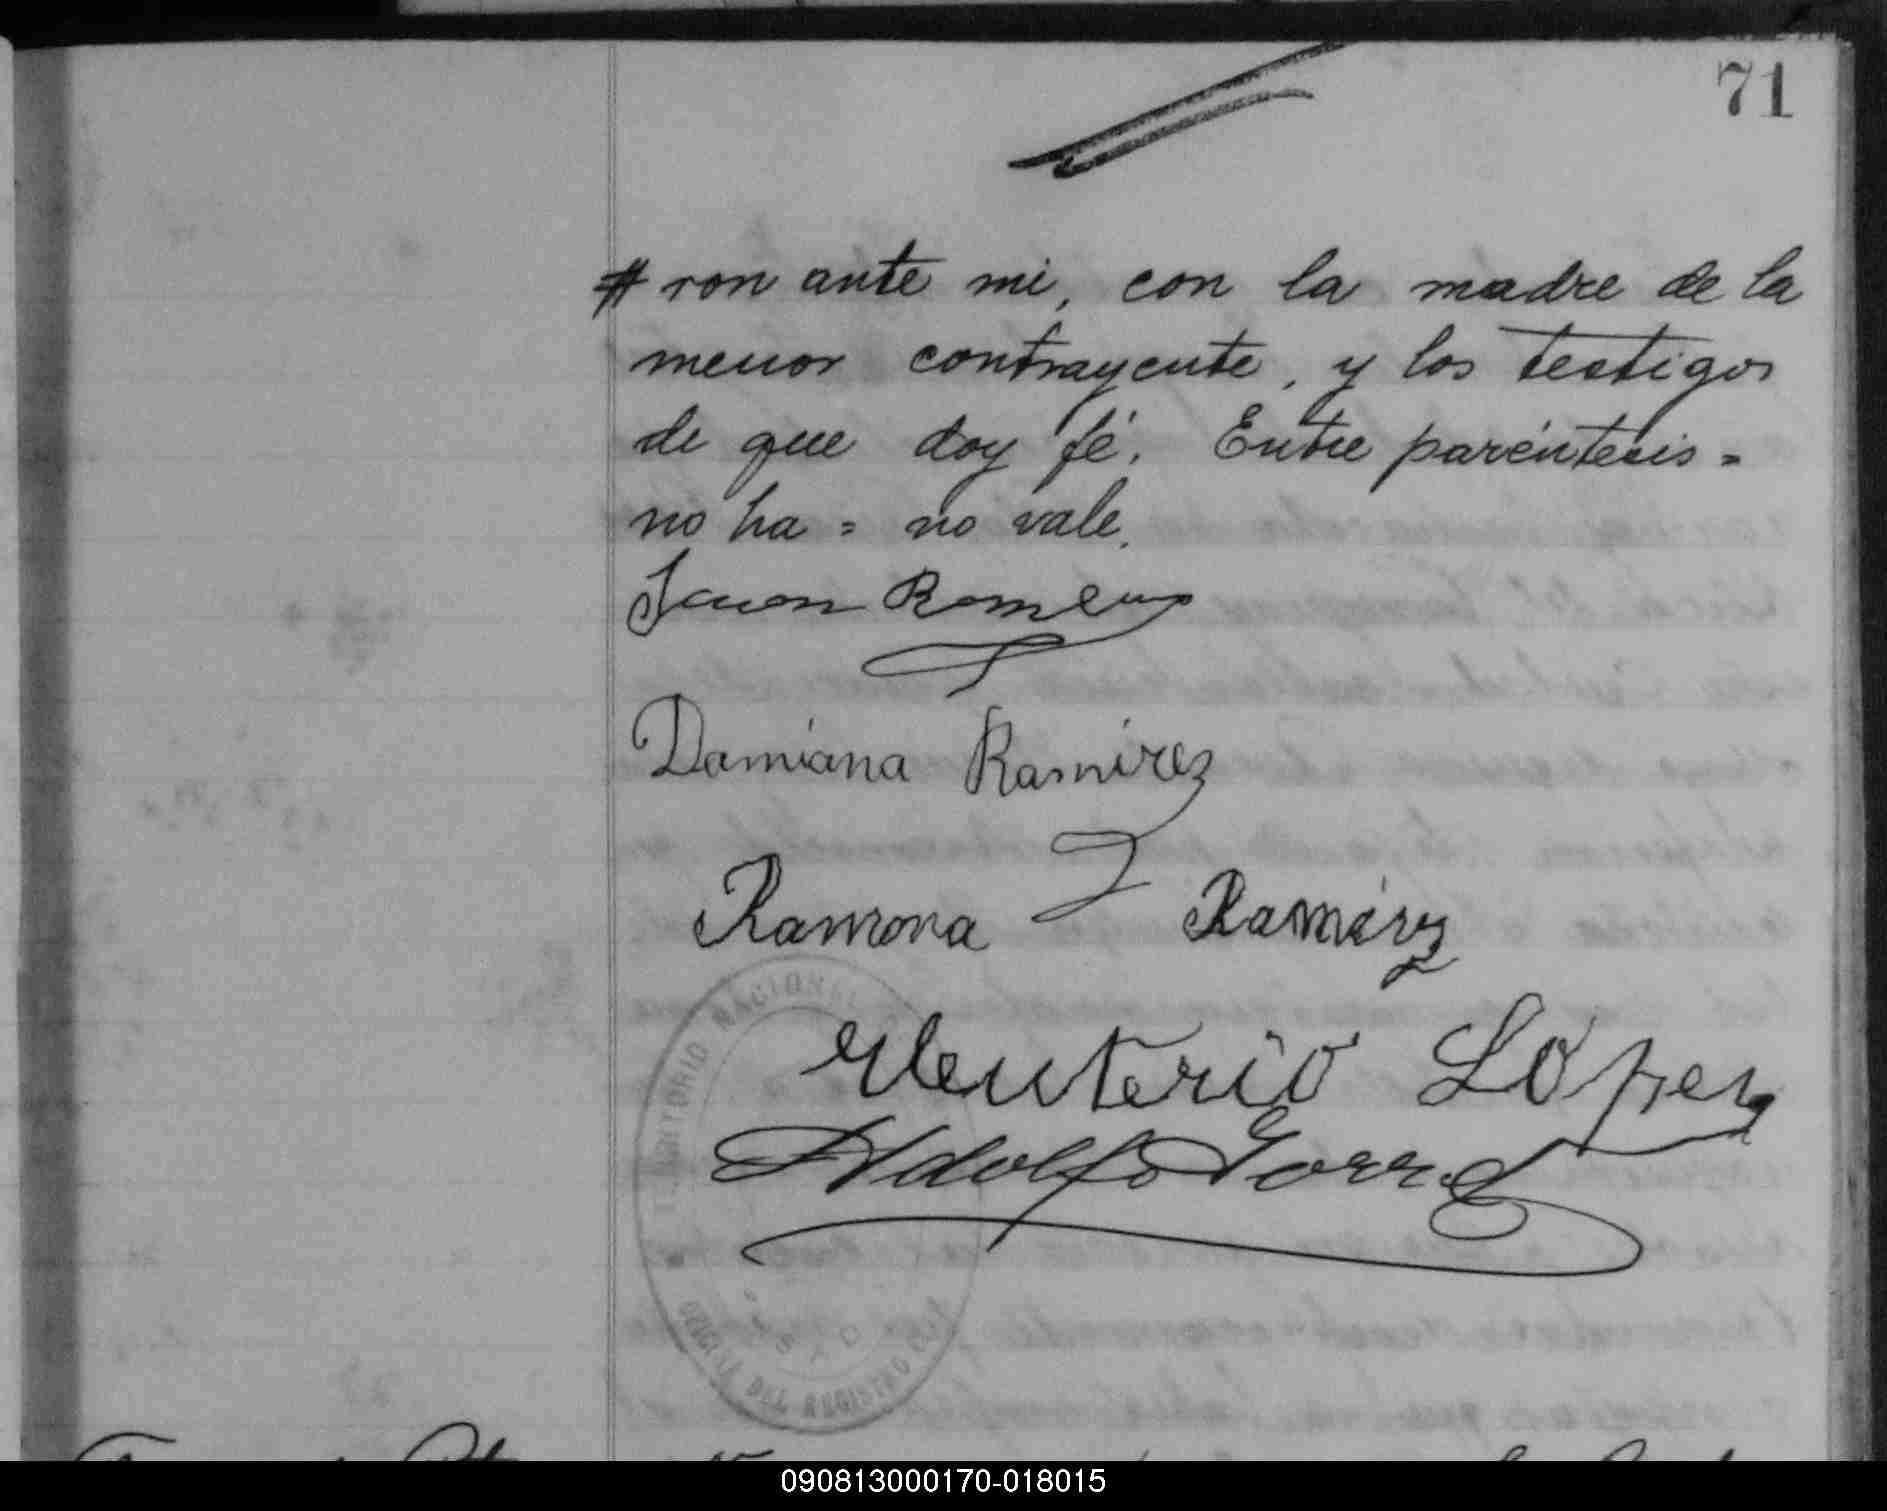 71
# ron ante mi, con la madre de la
menor contrayente, y los testigos
de que doy fé. Entre paréntesis =
no ha = no vale.
Juan Romero
Damiana Ramirez
Ramona Ramírez
Eleuterio López
Adolfo Torres
TERRITORIO NACIONAL
OFICINA DEL REGISTRO CIVIL
090813000170-018015